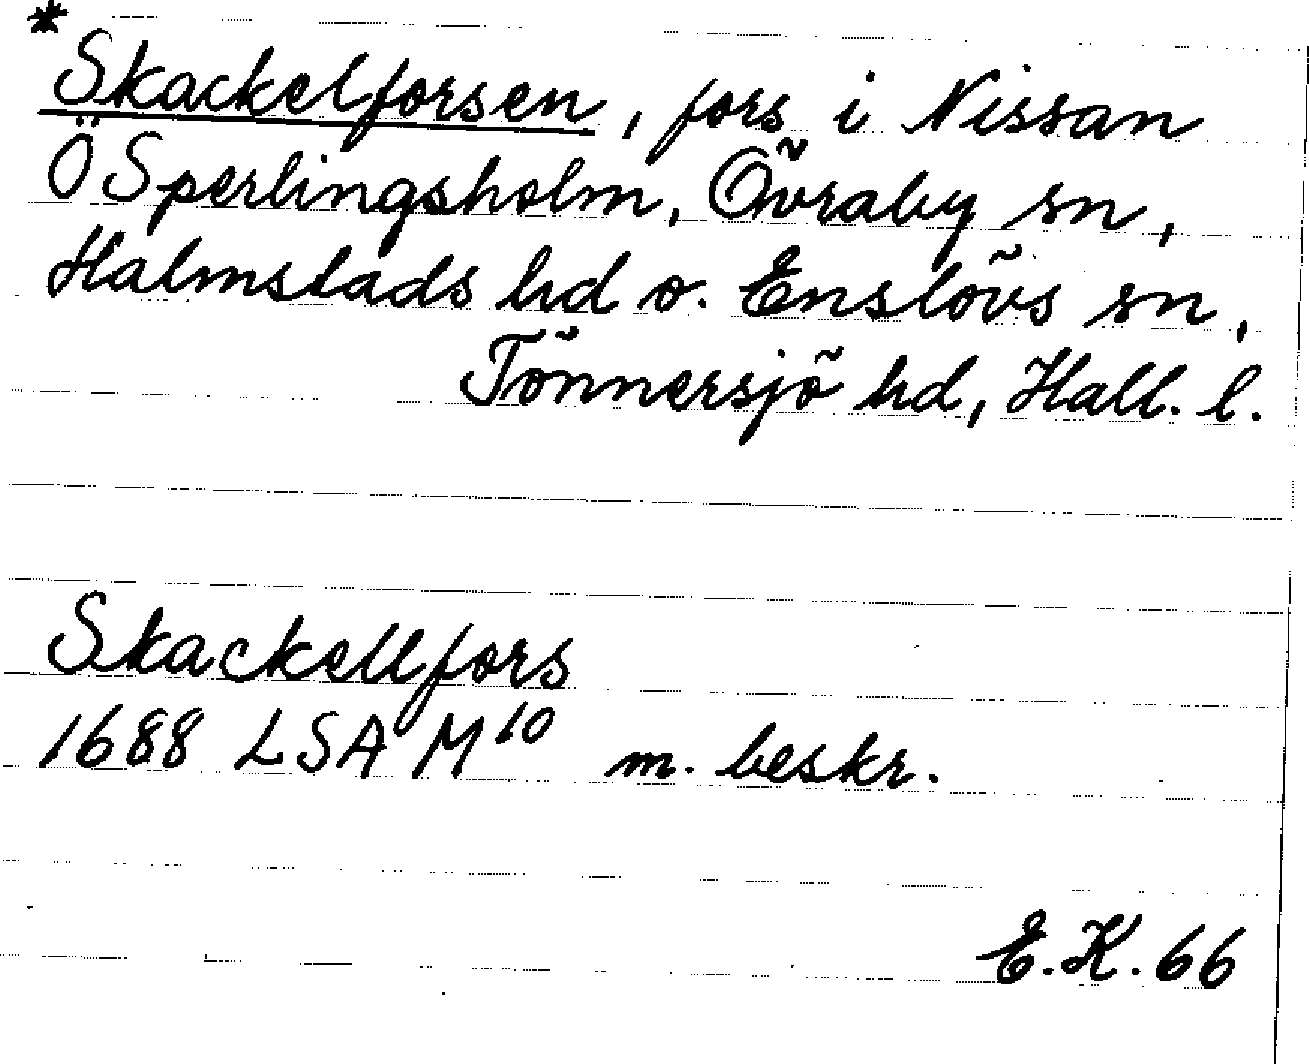 *
Skackelforsen, fors i Nissan
Ö Sperlingsholm, Övraby sn,
Halmstads hd o. Enslövs sn,
Tönnersjö hd, Hall. l.
Skackellfors
1688 LSA M¹⁰ m. beskr.
E.K. 66